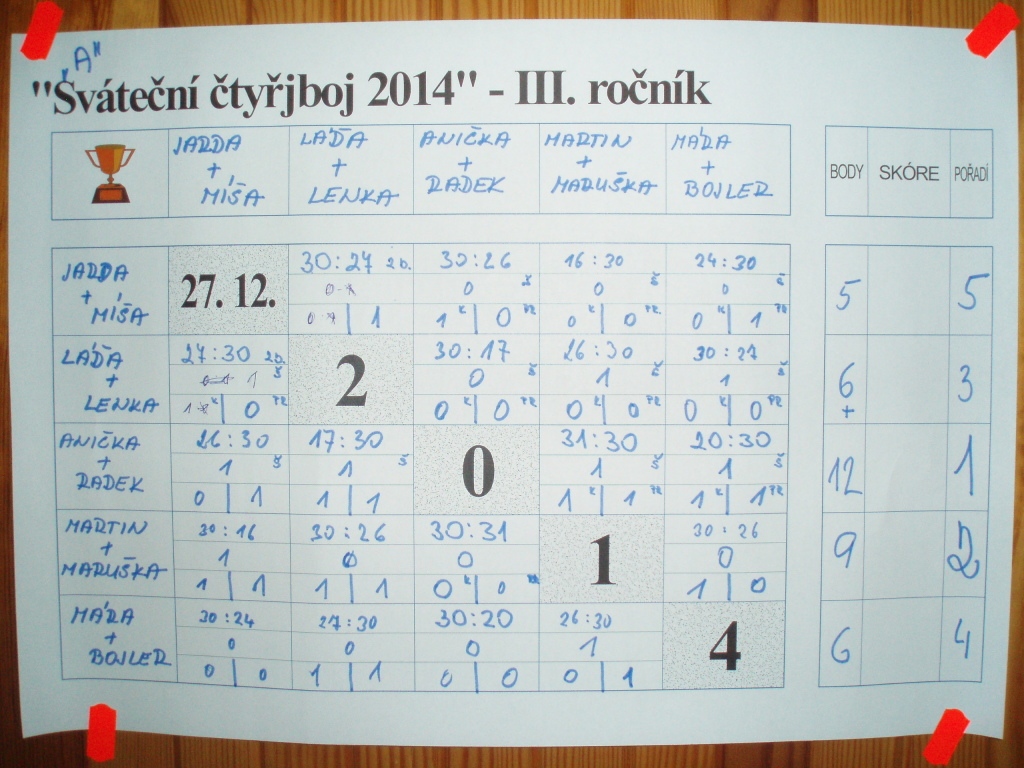 „A"
"Sváteční čtyřjboj 2014" - III. ročník
JARDA + MÍŠA LÁĎA + LENKA ANIČKA + RADEK MARTIN + MARUŠKA MÁRA + BOJLER BODY SKÓRE POŘADÍ
JARDA + MÍŠA 27. 12. 30:27 20. 30:26 16:30 24:30 5 5
0 Š 0 Š 0 Š
1 1 K 0 PR 0 K 0 PR. 0 K 1 PR
LÁĎA + LENKA 27:30 20. 2 30:17 26:30 30:27 6 + 3
1 Š 0 Š 1 Š 1 Š
1 K 0 PR 0 K 0 PR 0 K 0 PR 0 K 0 PR
ANIČKA + RADEK 26:30 17:30 0 31:30 20:30 12 1
1 Š 1 Š 1 Š 1 Š
0 1 1 1 1 K 1 PR 1 K 1 PR
MARTIN + MARUŠKA 30:16 30:26 30:31 1 30:26 9 2
1 0 0 0
1 1 1 1 0 K 0 1 0
MÁRA + BOJLER 30:24 27:30 30:20 26:30 4 6 4
0 0 0 1
0 0 1 1 0 0 0 1